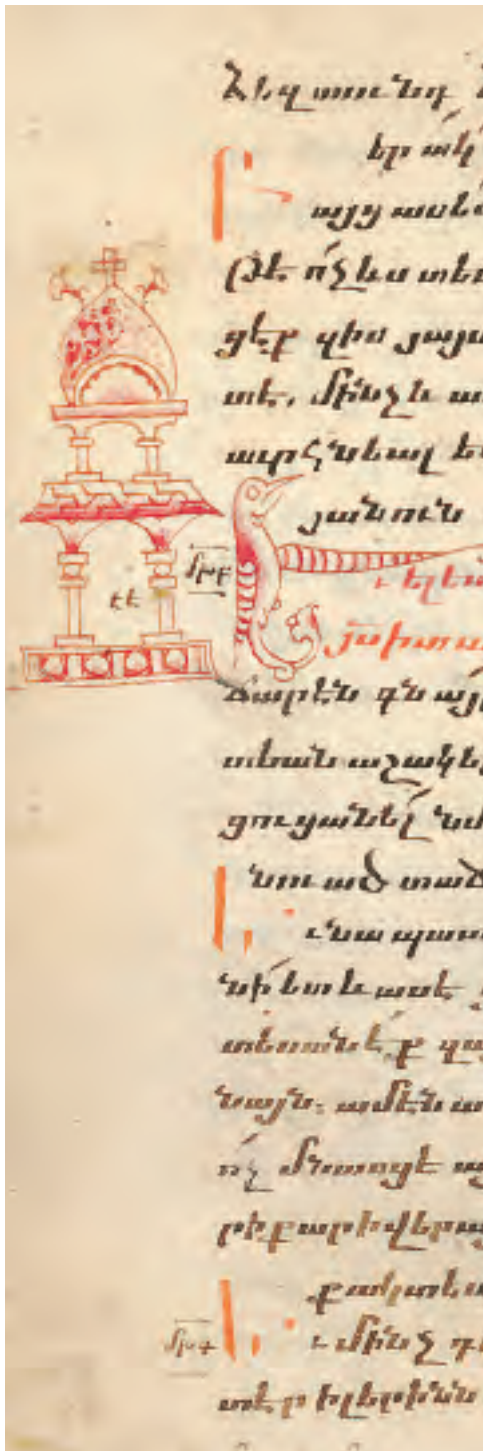 Ձեզ տունդ
եր ակ
Բ այց ասեմ
Թէ ո՛չ ևս տես
ցէք զիս յայս
տէ. մինչև ա
աւրհնեալ ե
յանուն
մխբ
Եւ ելեա
էէ
յիսուս
ճարէն գնայ
տեան աշակե
ցուցանել նմ
նուած տաճ
Եւ նա պատա
նի ետ և ասէ ց
տեսանէ՛ք զայ
նայն. ամէն ա
ո՛չ մնասցէ այ
րի քարի վերայ
քակտես
մխգ Եւ մինչ դե
տէր ի լեռինն